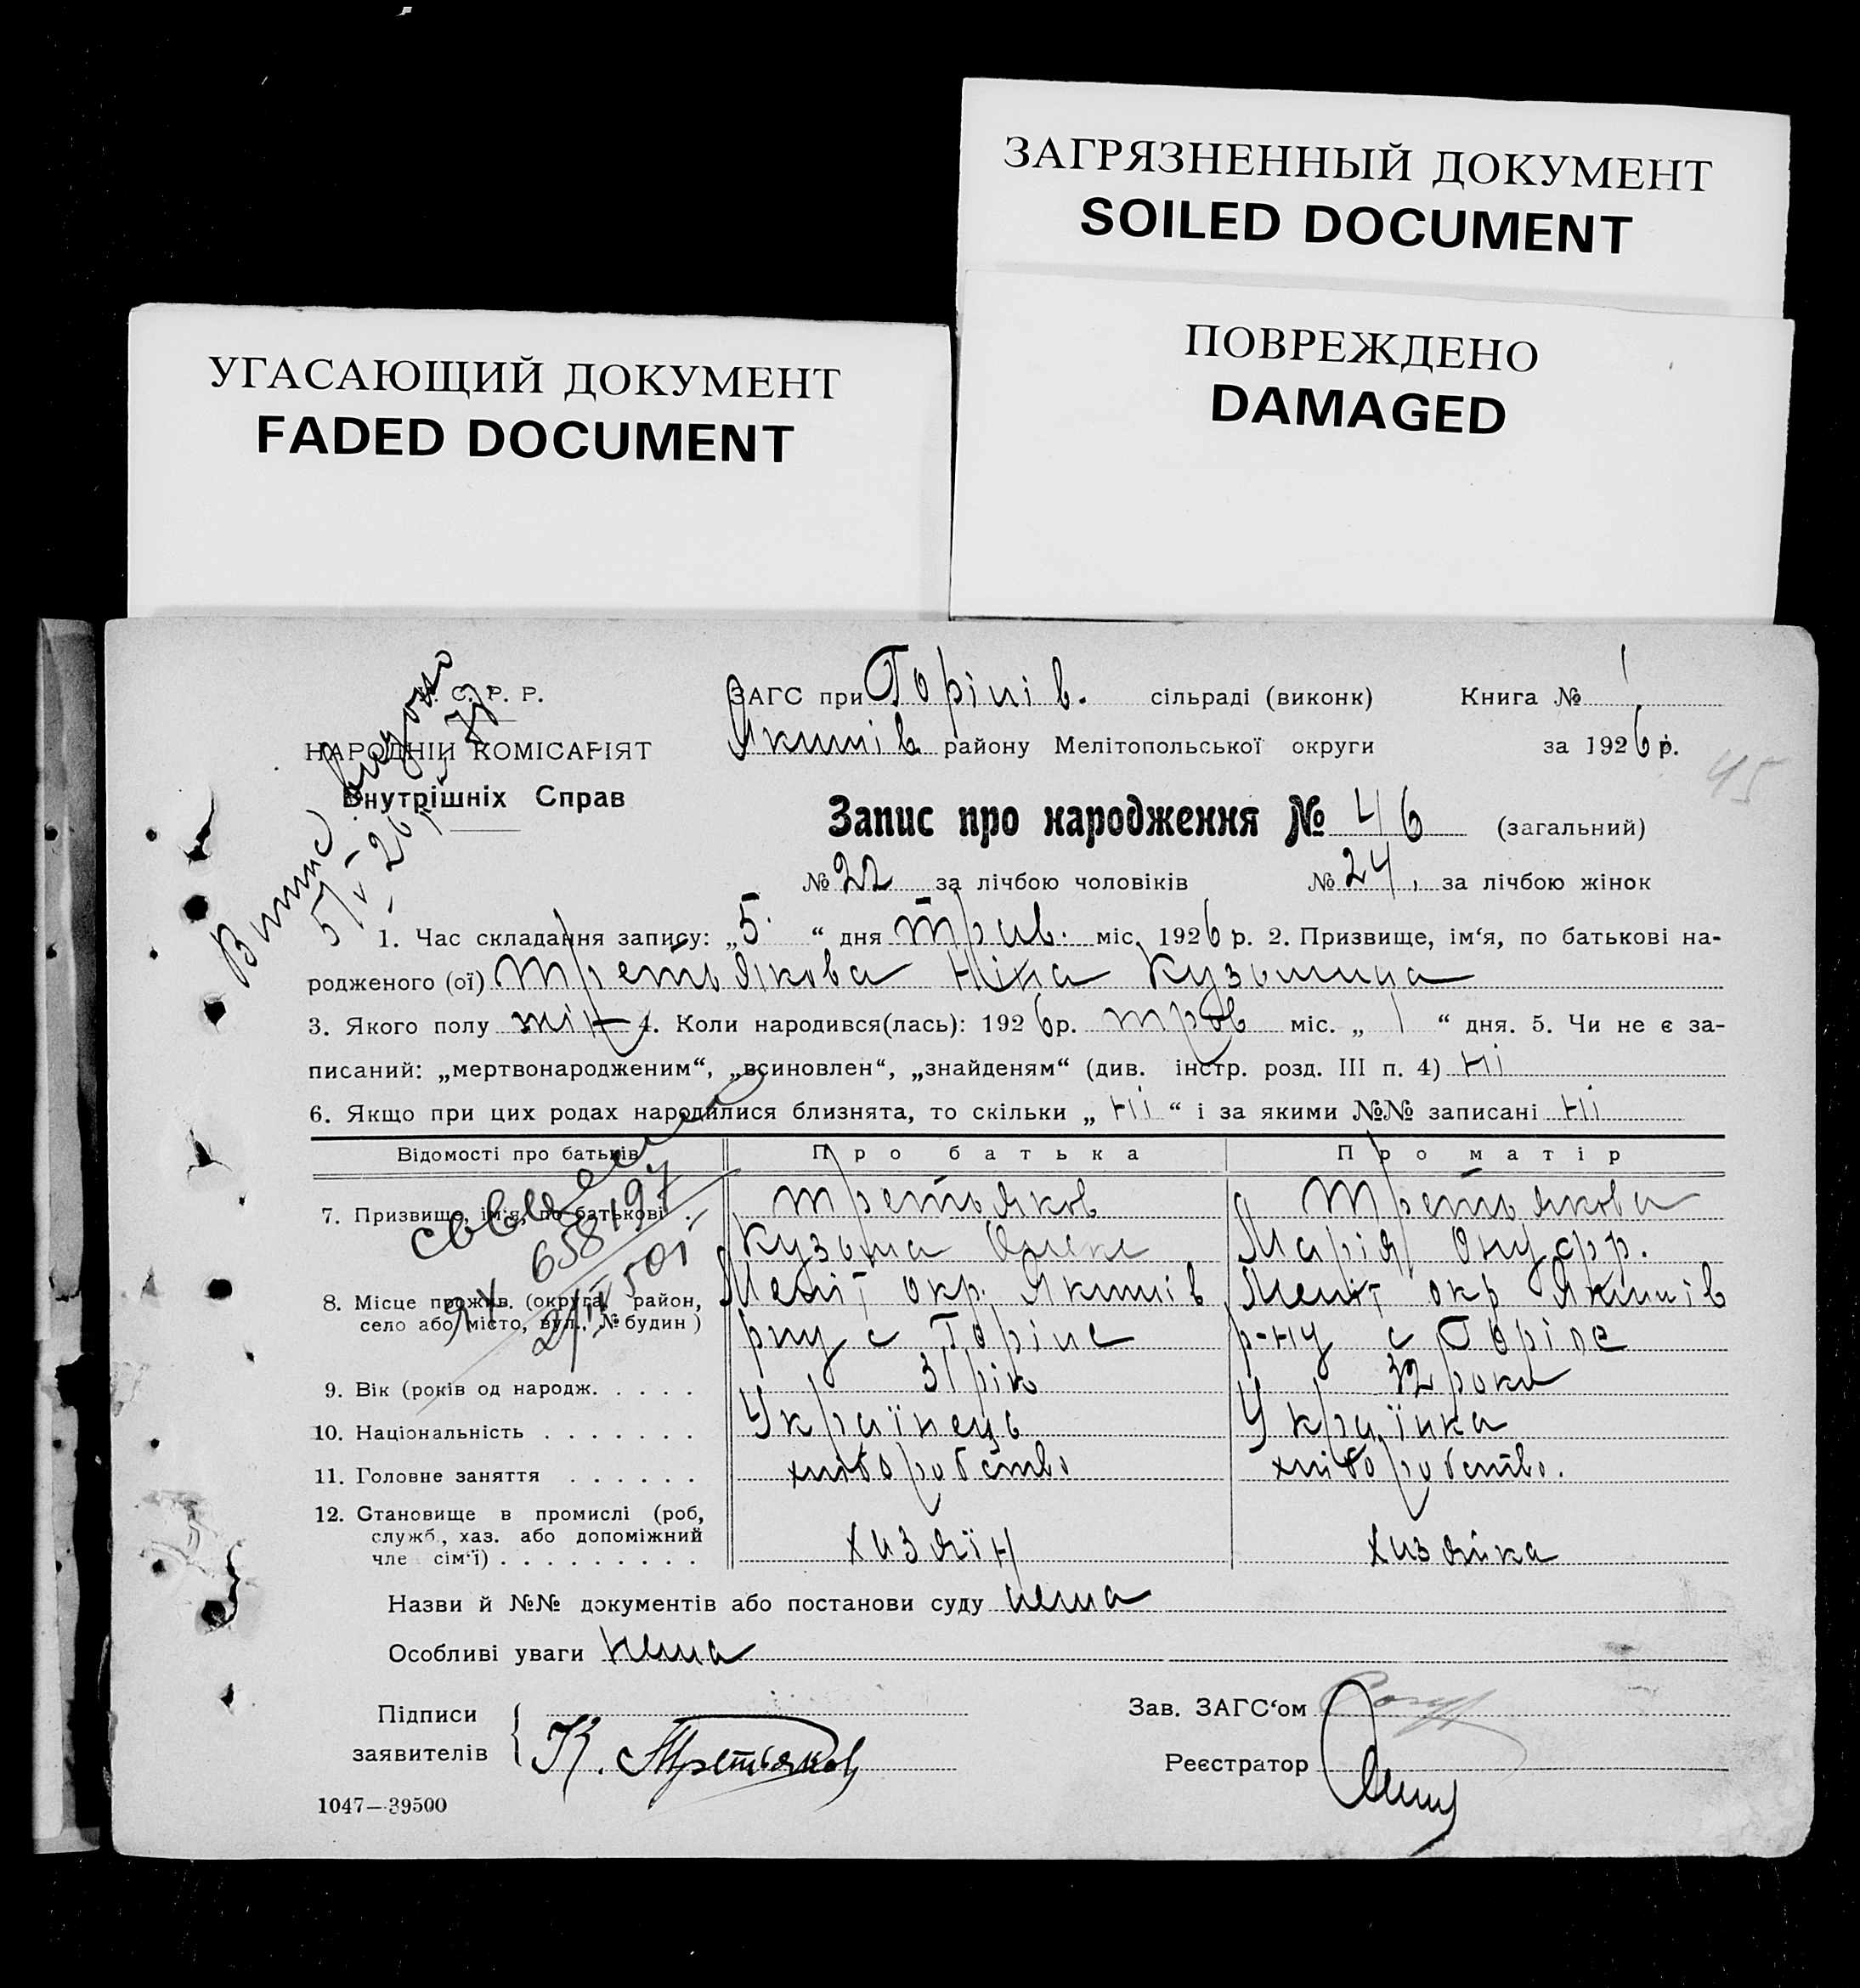 ЗАГРЯЗНЕННЫЙ ДОКУМЕНТ
SOILED DOCUMENT
ПОВРЕЖДЕНО
DAMAGED
УГАСАЮЩИЙ ДОКУМЕНТ
FADED DOCUMENT
С. Р. Р.
НАРОДНІЙ КОМІСАРІЯТ
Внутрішніх Справ
ЗАГС при Горінів. сільраді (виконк) Книга № 1
Якимів району Мелітопольської округи за 1926 р.
45
Запис про народження № 46 (загальний)
№ 22 за лічбою чоловіків № 24. за лічбою жінок
Випис видано
5/V 26 р
1. Час складання запису: „5“ дня Трав. міс. 1926 р. 2. Призвище, ім‘я, по батькові на-
родженого (ої) Третьякова Ніна Кузьмина
3. Якого полу жін 4. Коли народився(лась): 1926 р. трав міс. „1“ дня. 5. Чи не є за-
писаний: „мертвонародженим“, „всиновлен“, „знайденям“ (див. інстр. розд. III п. 4) Ні
6. Якщо при цих родах народилися близнята, то скільки „Ні“ і за якими №№ записані Ні
Відомості про батьків Про батька Про матір
7. Призвище, ім‘я, по батькові . Третьяков Третьякова
Кузьма Олекс Марія Онуфр.
8. Місце прожив. (округа, район, Меліт окр. Якимів Меліт окр Якимів
село або місто, вул., № будин) рну с Горіне р-ну с Горіне
658197
9. Вік (років од народж. . . . . 31 рік 32 роки
10. Національність . . . . . . . Українець Українка
11. Головне заняття . . . . . . хліборобство хліборобство.
12. Становище в промислі (роб,
служб., хаз. або допоміжний
чле сім‘ї) . . . . . . . . . хазяїн хазяйка
Назви й №№ документів або постанови суду нема
Особливі уваги Нема
Підписи
заявителів К. Третьяков
Зав. ЗАГС‘ом
Реєстратор
1047—39500